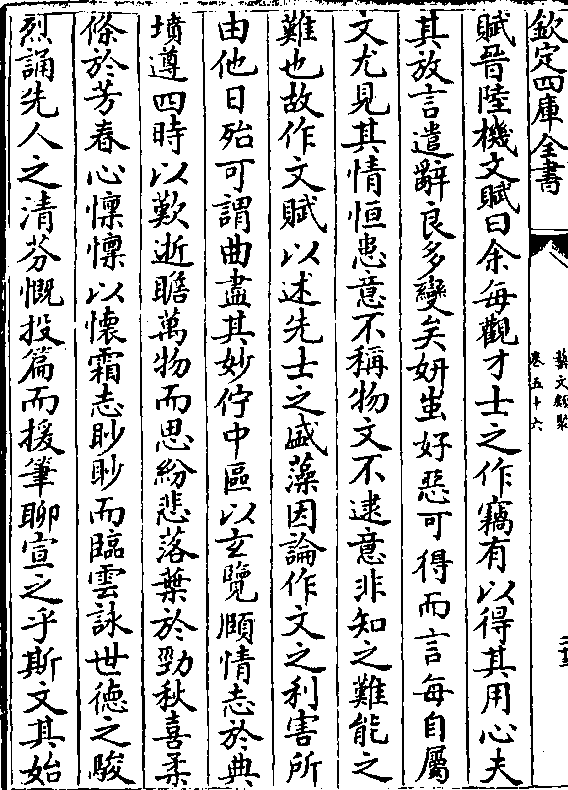 欽定四庫全書
藝文類聚
卷五十六
賦晉陸機文賦曰余每觀才士之作竊有以得其用心夫
其放言遣辭良多變矣妍蚩好惡可得而言每自屬
文尤見其情恒患意不稱物文不逮意非知之難能之
難也故作文賦以述先士之盛藻因論作文之利害所
由他日殆可謂曲盡其妙佇中區以玄覽頤情志於典
墳遵四時以歎逝瞻萬物而思紛悲落葉於勁秋喜柔
條於芳春心懔懔以懷霜志眇眇而臨雲詠世德之駿
烈誦先人之清芬慨投篇而援筆聊宣之乎斯文其始